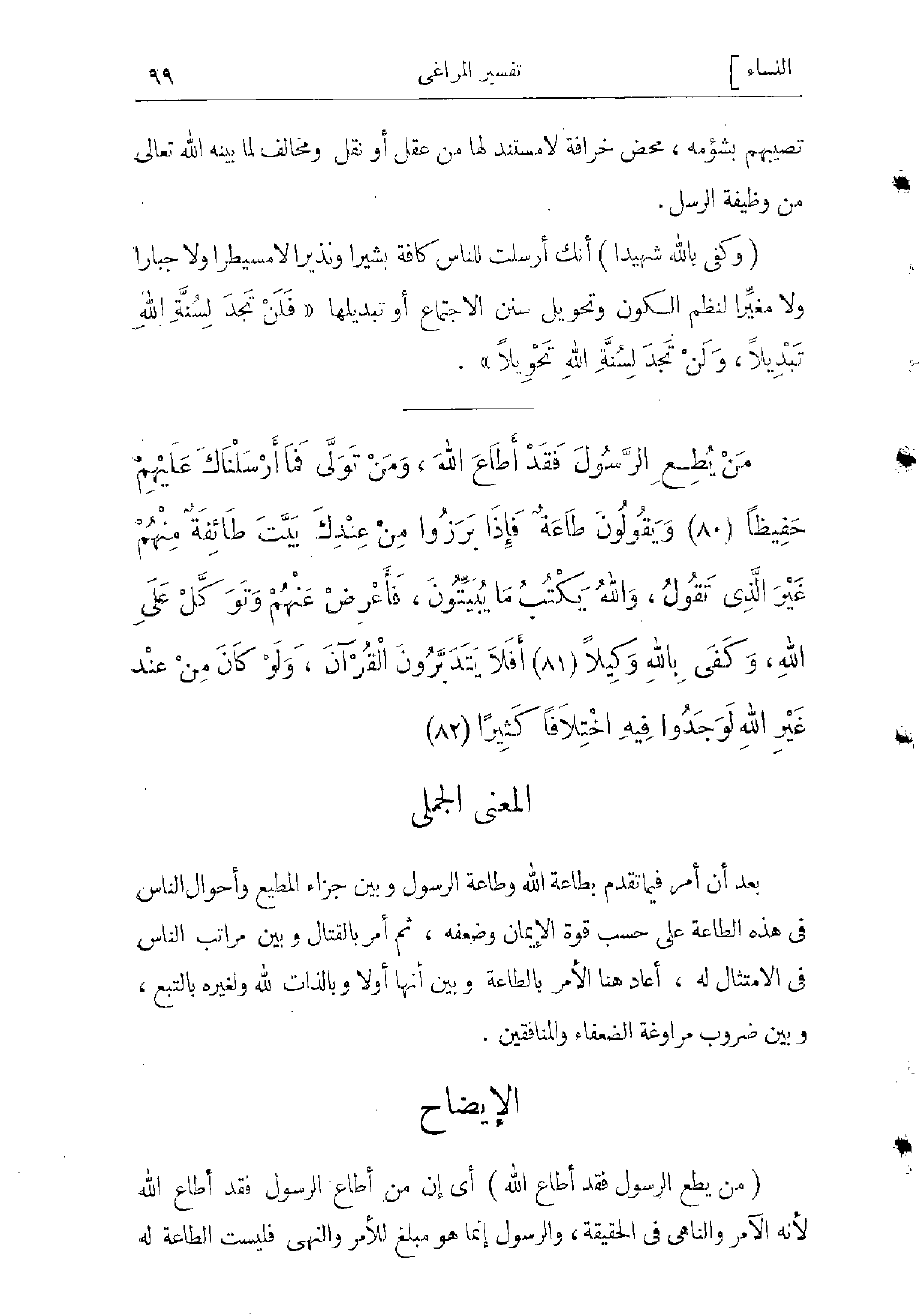 النساء ] تفسير المراغى ٩٩
تصيبهم بشؤمه ، محض خرافة لامستند لها من عقل أو نقل ومخالف لما بينه الله تعالى
من وظيفة الرسل .
( وكفى بالله شهيدا ) أنك أرسلت للناس كافة بشيرا ونذيرا لامسيطرا ولا جبارا
ولا مغيِّرا لنظم الكون وتحويل سنن الاجتماع أو تبديلها « فَلَنْ تَجِدَ لِسُنَّةِ اللهِ
تَبْدِيلاً ، وَلَنْ تَجِدَ لِسُنَّةِ اللهِ تَحْوِيلاً » .
مَنْ يُطِعِ الرَّسُولَ فَقَدْ أَطَاعَ اللهَ ، وَمَنْ تَوَلَّى فَمَا أَرْسَلْنَاكَ عَلَيْهِمْ
حَفِيظاً (٨٠) وَيَقُولُونَ طَاعَةٌ فَإِذَا بَرَزُوا مِنْ عِنْدِكَ بَيَّتَ طَائِفَةٌ مِنْهُمْ
غَيْرَ الَّذِى تَقُولُ ، وَاللهُ يَكْتُبُ مَا يُبَيِّتُونَ ، فَأَعْرِضْ عَنْهُمْ وَتَوَكَّلْ عَلَى
اللهِ ، وَكَفَى بِاللهِ وَكِيلاً (٨١) أَفَلاَ يَتَدَبَّرُونَ الْقُرْآنَ ، وَلَوْ كَانَ مِنْ عِنْدِ
غَيْرِ اللهِ لَوَجَدُوا فِيهِ اخْتِلاَفًا كَثِيرًا (٨٢)
المعنى الجملى
بعد أن أمر فيما تقدم بطاعة الله وطاعة الرسول وبين جزاء المطيع وأحوال الناس
فى هذه الطاعة على حسب قوة الإيمان وضعفه ، ثم أمر بالقتال وبين مراتب الناس
فى الامتثال له ، أعاد هنا الأمر بالطاعة وبين أنها أولا وبالذات لله ولغيره بالتبع ،
وبين ضروب مراوغة الضعفاء والمنافقين .
الإيضاح
( من يطع الرسول فقد أطاع الله ) أى إن من أطاع الرسول فقد أطاع الله
لأنه الآمر والناهى فى الحقيقة ، والرسول إنما هو مبلغ للأمر والنهى فليست الطاعة له